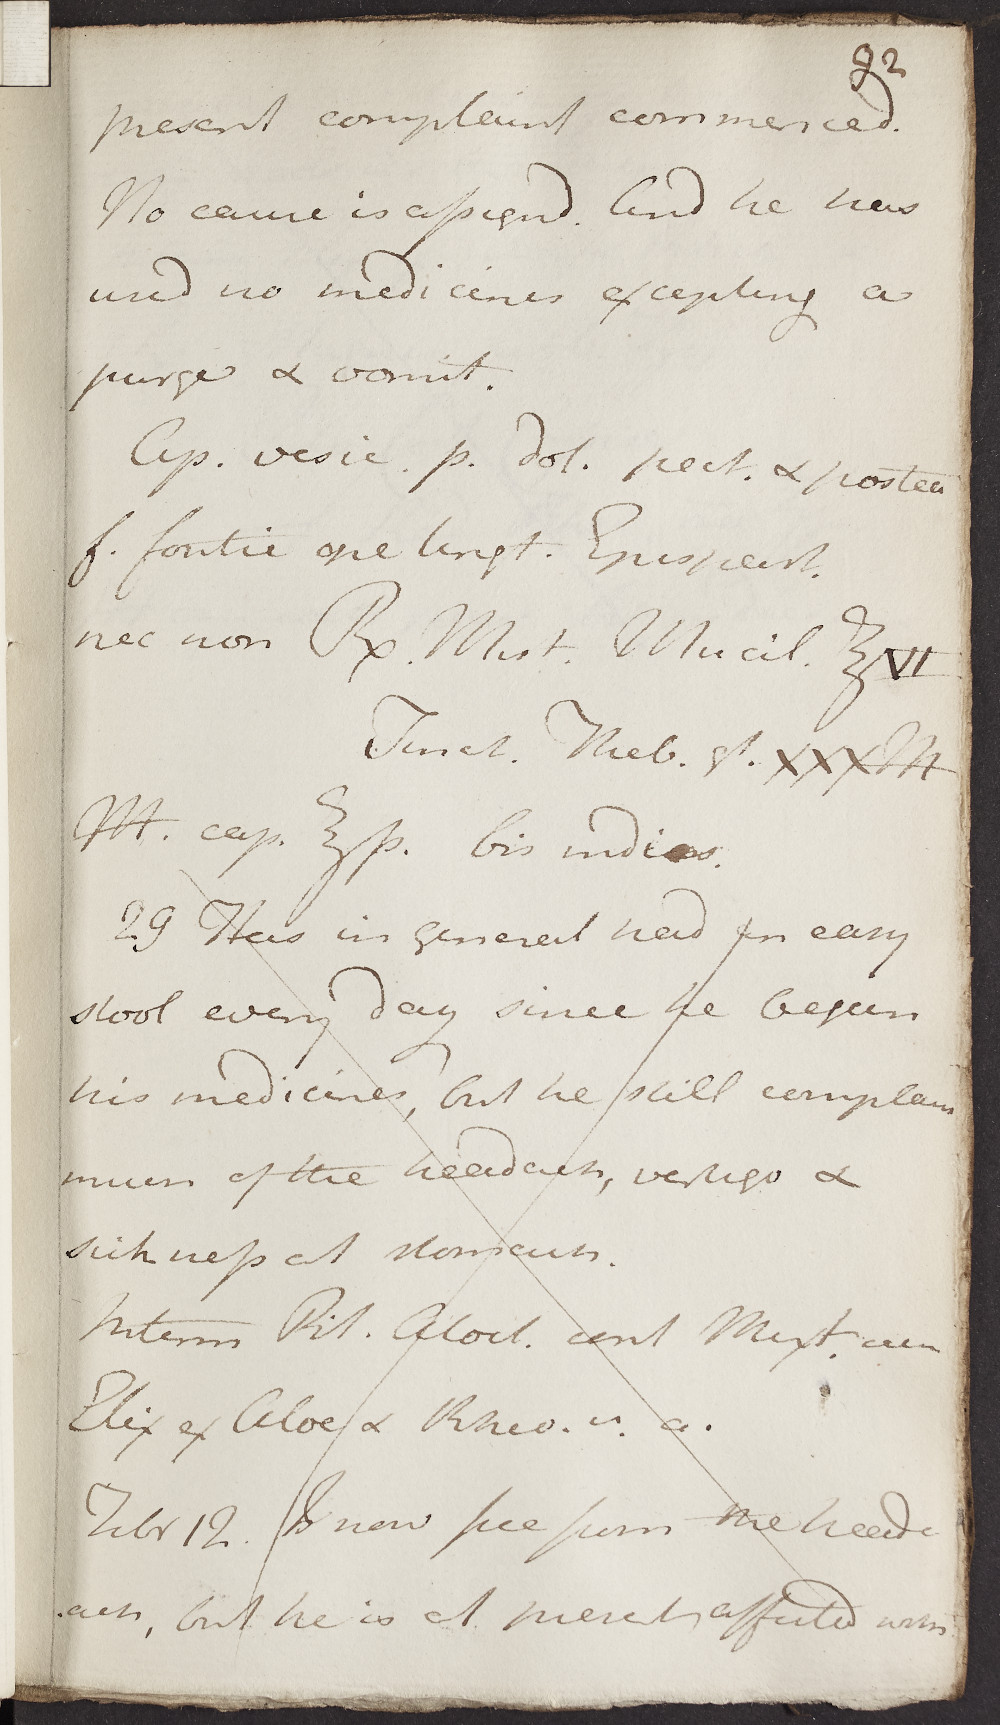 92
present complaint commenced.
No cause is assignd. And he has
used no medicines excepting a
purge & vomit.
Ap. vesic. p. dol. pect. & postea
f. fontic ope Ungt. Epispast.
nec non Rx. Mist. Mucil. ℥VI
Tinct. Theb. gt. XXX M
M. cap. ℥ß. bis indies.
29 Has in general had an easy
stool every day since he begun
his medicines, but he still complains
much of the headach, vertigo &
sickness at stomach.
Interm Pil. Aloet. cont Mixt. cum
Elix ex Aloe & Rheo. u. a.
Febr 12. Is now free from the head
ach, but he is at present affected with